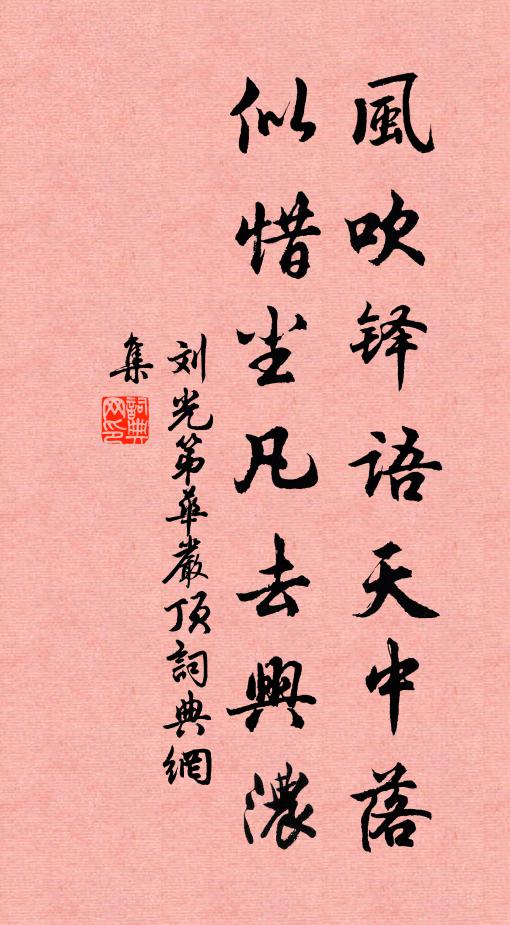 風吹铎语天中落
似惜尘凡去興濃
刘光第華嚴顶詞典網
集
詞典网印